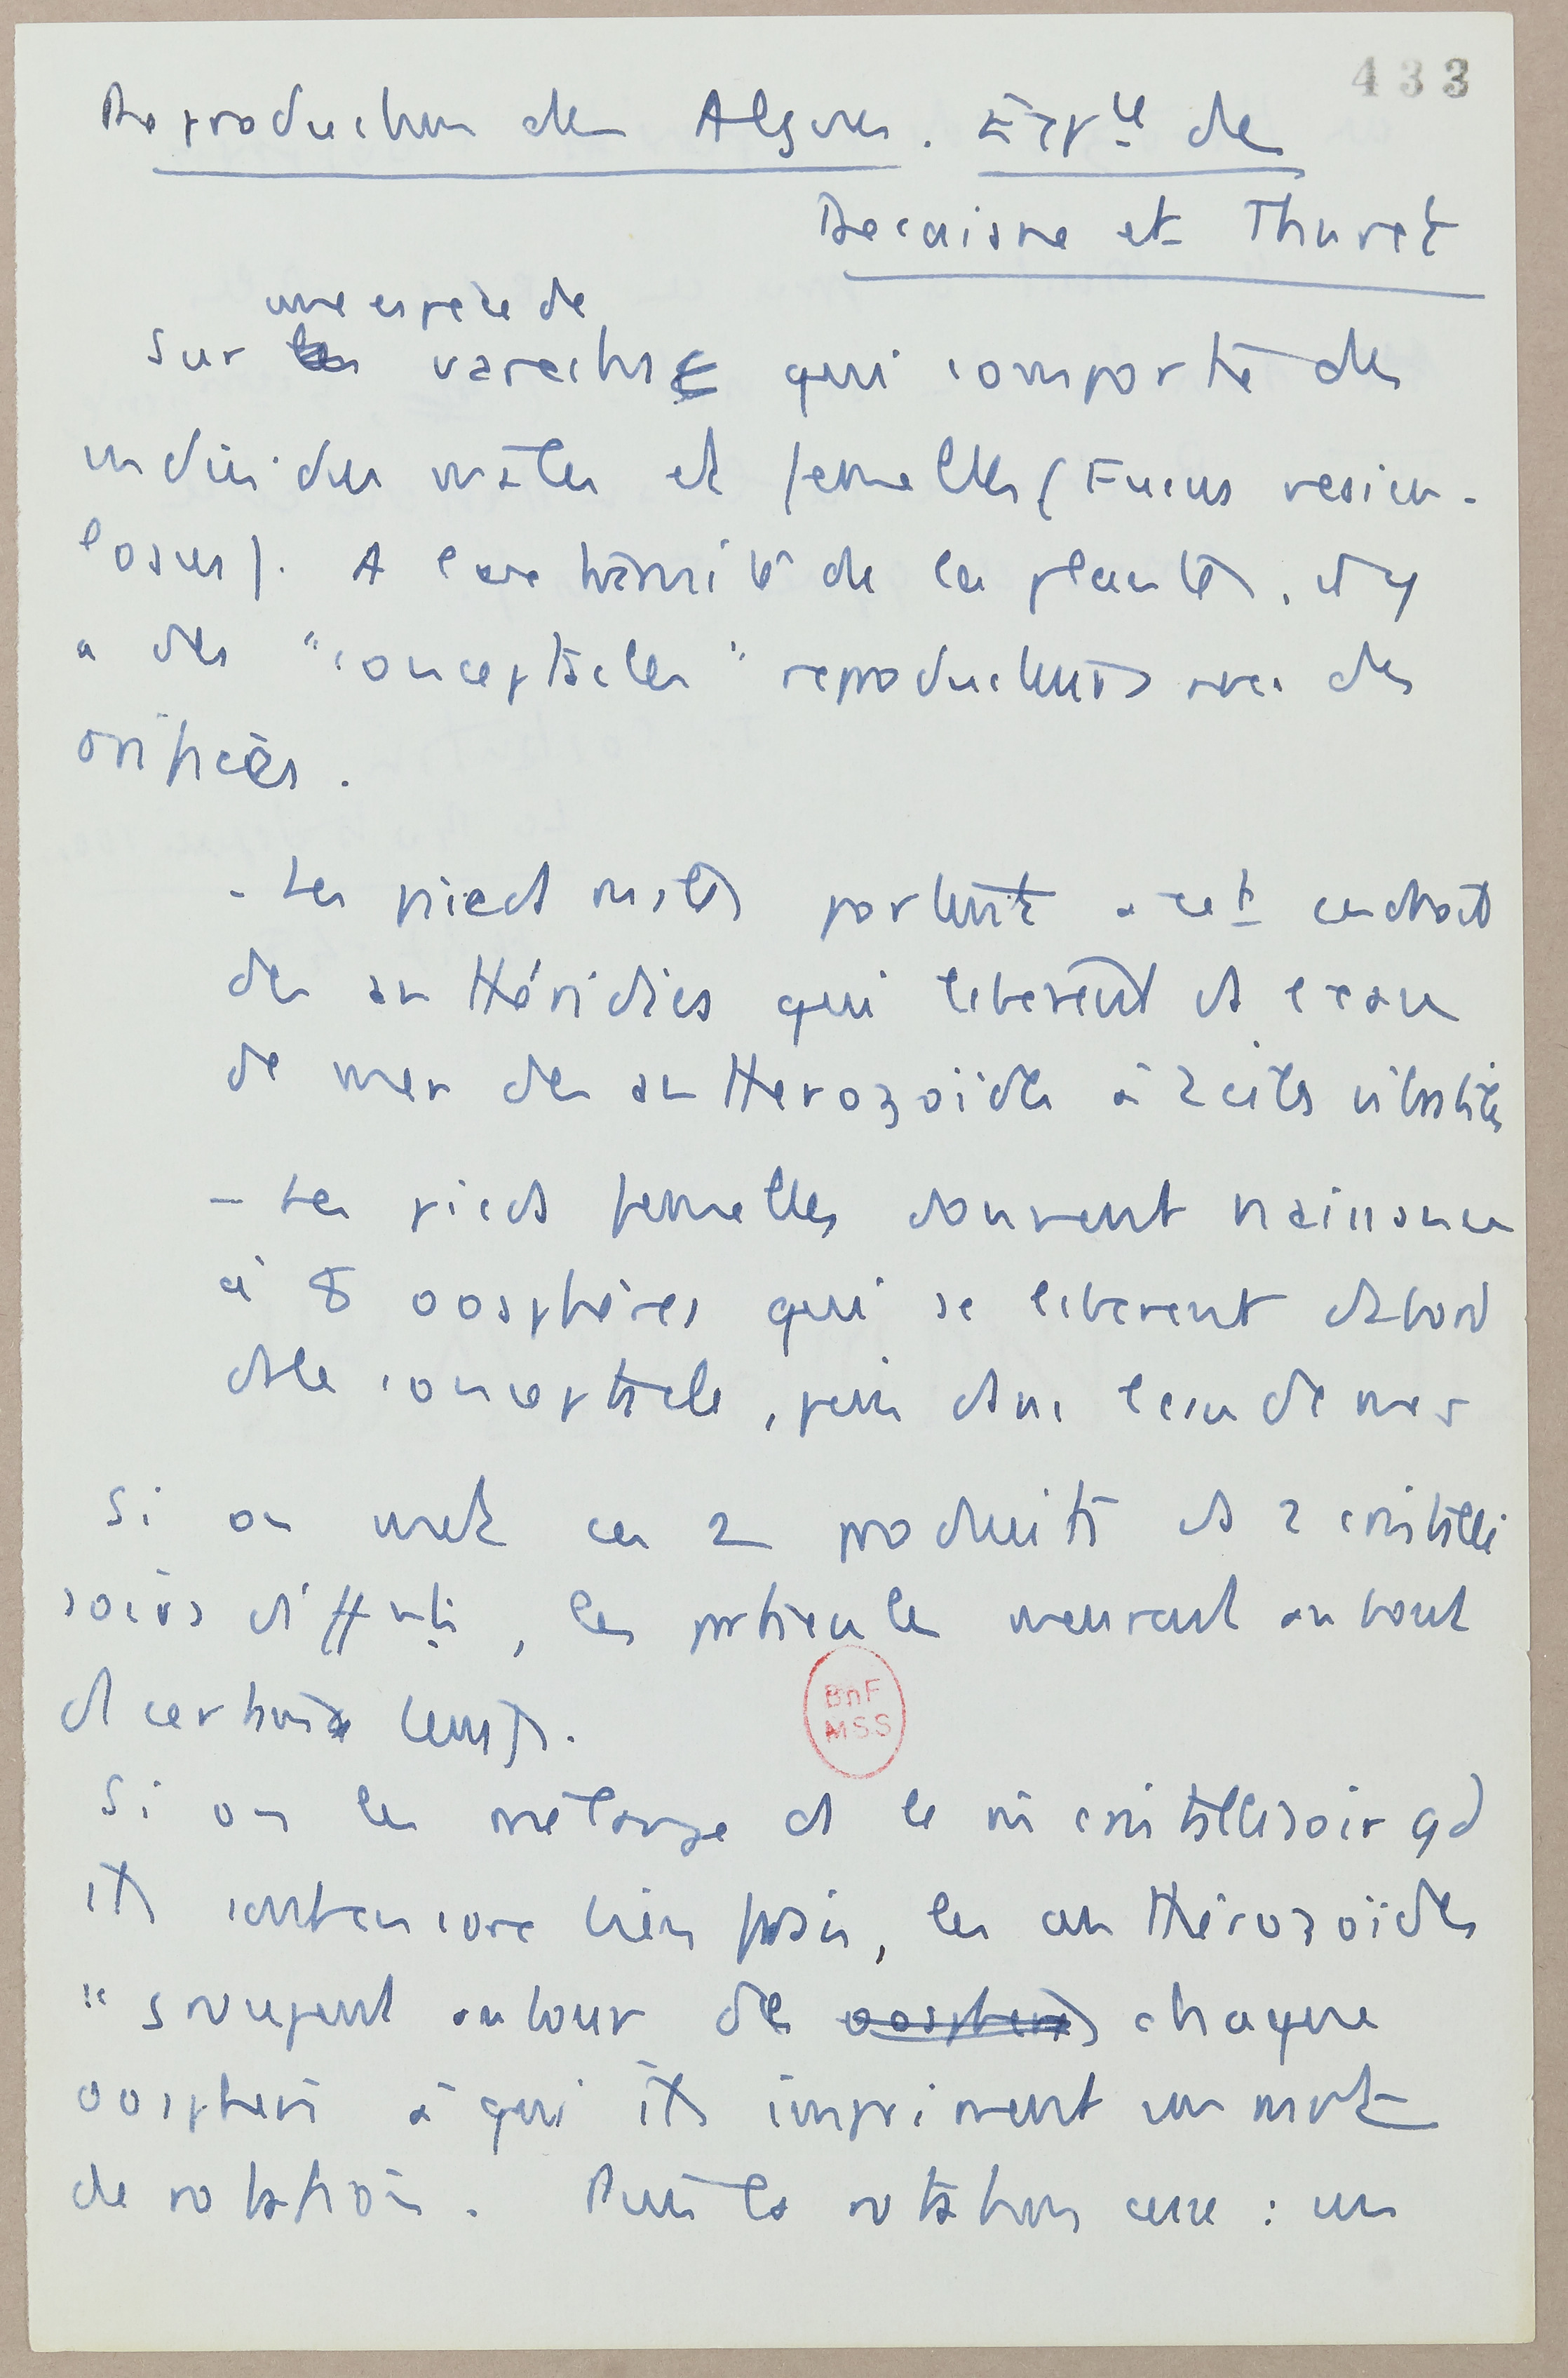 433
Reproduction des Algues. Expce de
Decaisne et Thuret
une espèce de
Sur les varechs qui comporte des
individus mâles et femelles (Fucus vesicu-
losus). A l'extrémité de la plante, il y
a des "conceptacles" reproducteurs avec des
orifices.
- Les pieds mâles portent à cet endroit
des anthéridies qui liberent ds l'eau
de mer des antherozoïdes à 2 cils vibratiles
- Les pieds femelles donnent naissance
à 8 oosphères qui se liberent d'abord
ds le conceptacle, puis dans l'eau de mer
Si on met ces 2 produits ds 2 cristalli
soirs diffnts, les particules meurent au bout
d'certain temps.
Si on les mélange ds le m cristallisoir qd
ils sont encore bien frais, les anthérozoïdes
"s groupent autour de oospheres chaque
oosphere à qui ils impriment un mvt
de rotation. Puis la rotation cesse : un
BnF
MSS